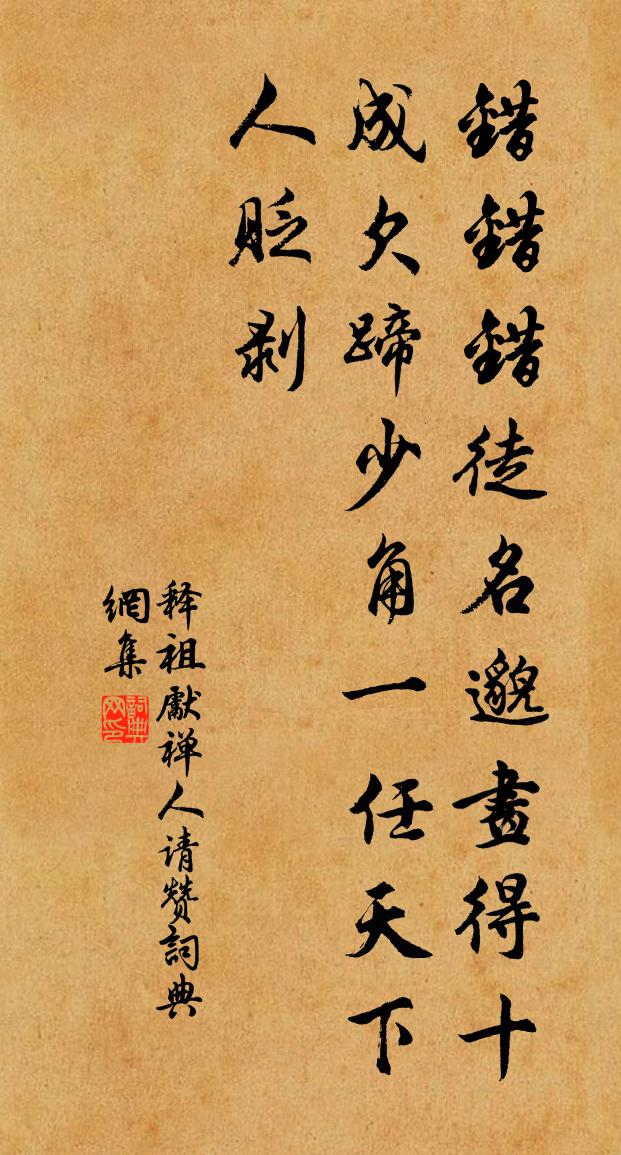 錯錯錯徒名邈畫得十
成欠蹄少角一任天下
人貶剥
释祖獻禅人请赞詞典
網集
詞典
网印